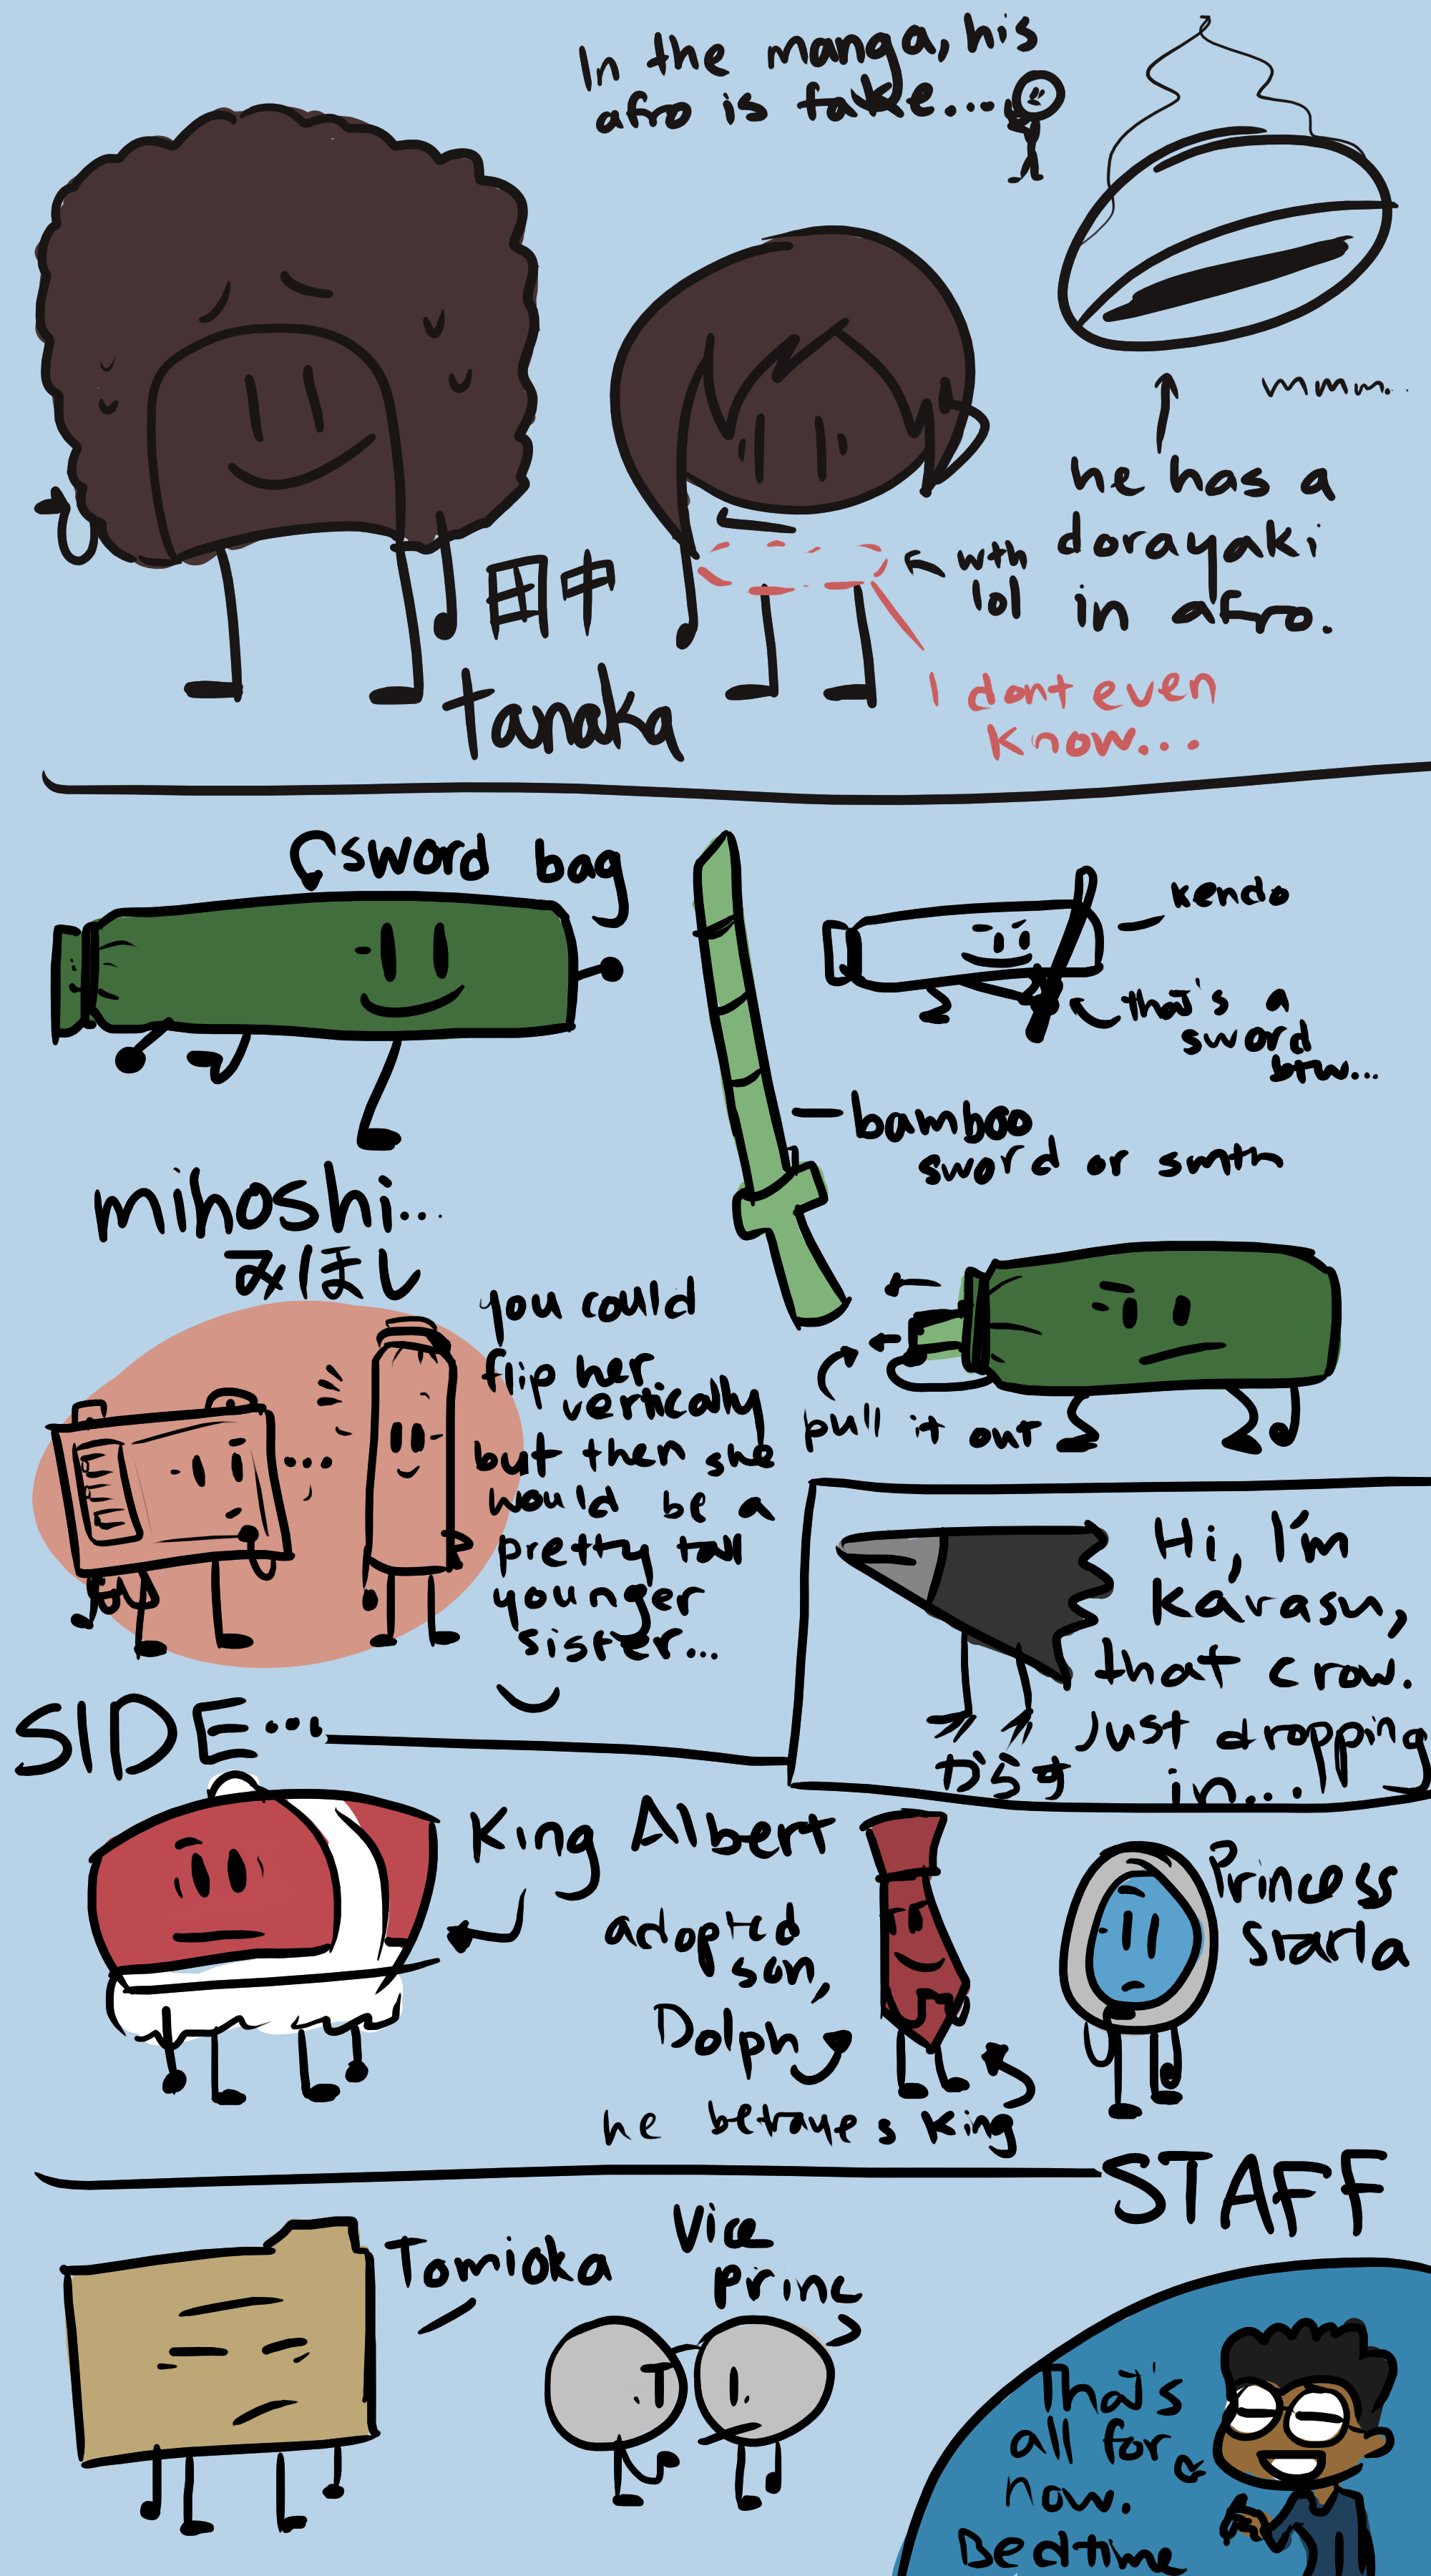 In the manga, his
afro is fake...
mmm...
he has a
dorayaki
in afro.
wth
lol
I dont even
know...
田中
Tanaka
sword bag
kendo
that's a
sword
btw...
bamboo
sword or smth
mihoshi...
みほし
you could
flip her
vertically
but then she
would be a
pretty tall
younger
sister...
pull it out
Hi, I'm
Karasu,
that crow.
Just dropping
in...
からす
SIDE...
King Albert
adopted
son,
Dolph
he betrayes king
Princess
Starla
STAFF
Tomioka
Vice
princ
That's
all for
now.
Bedtime